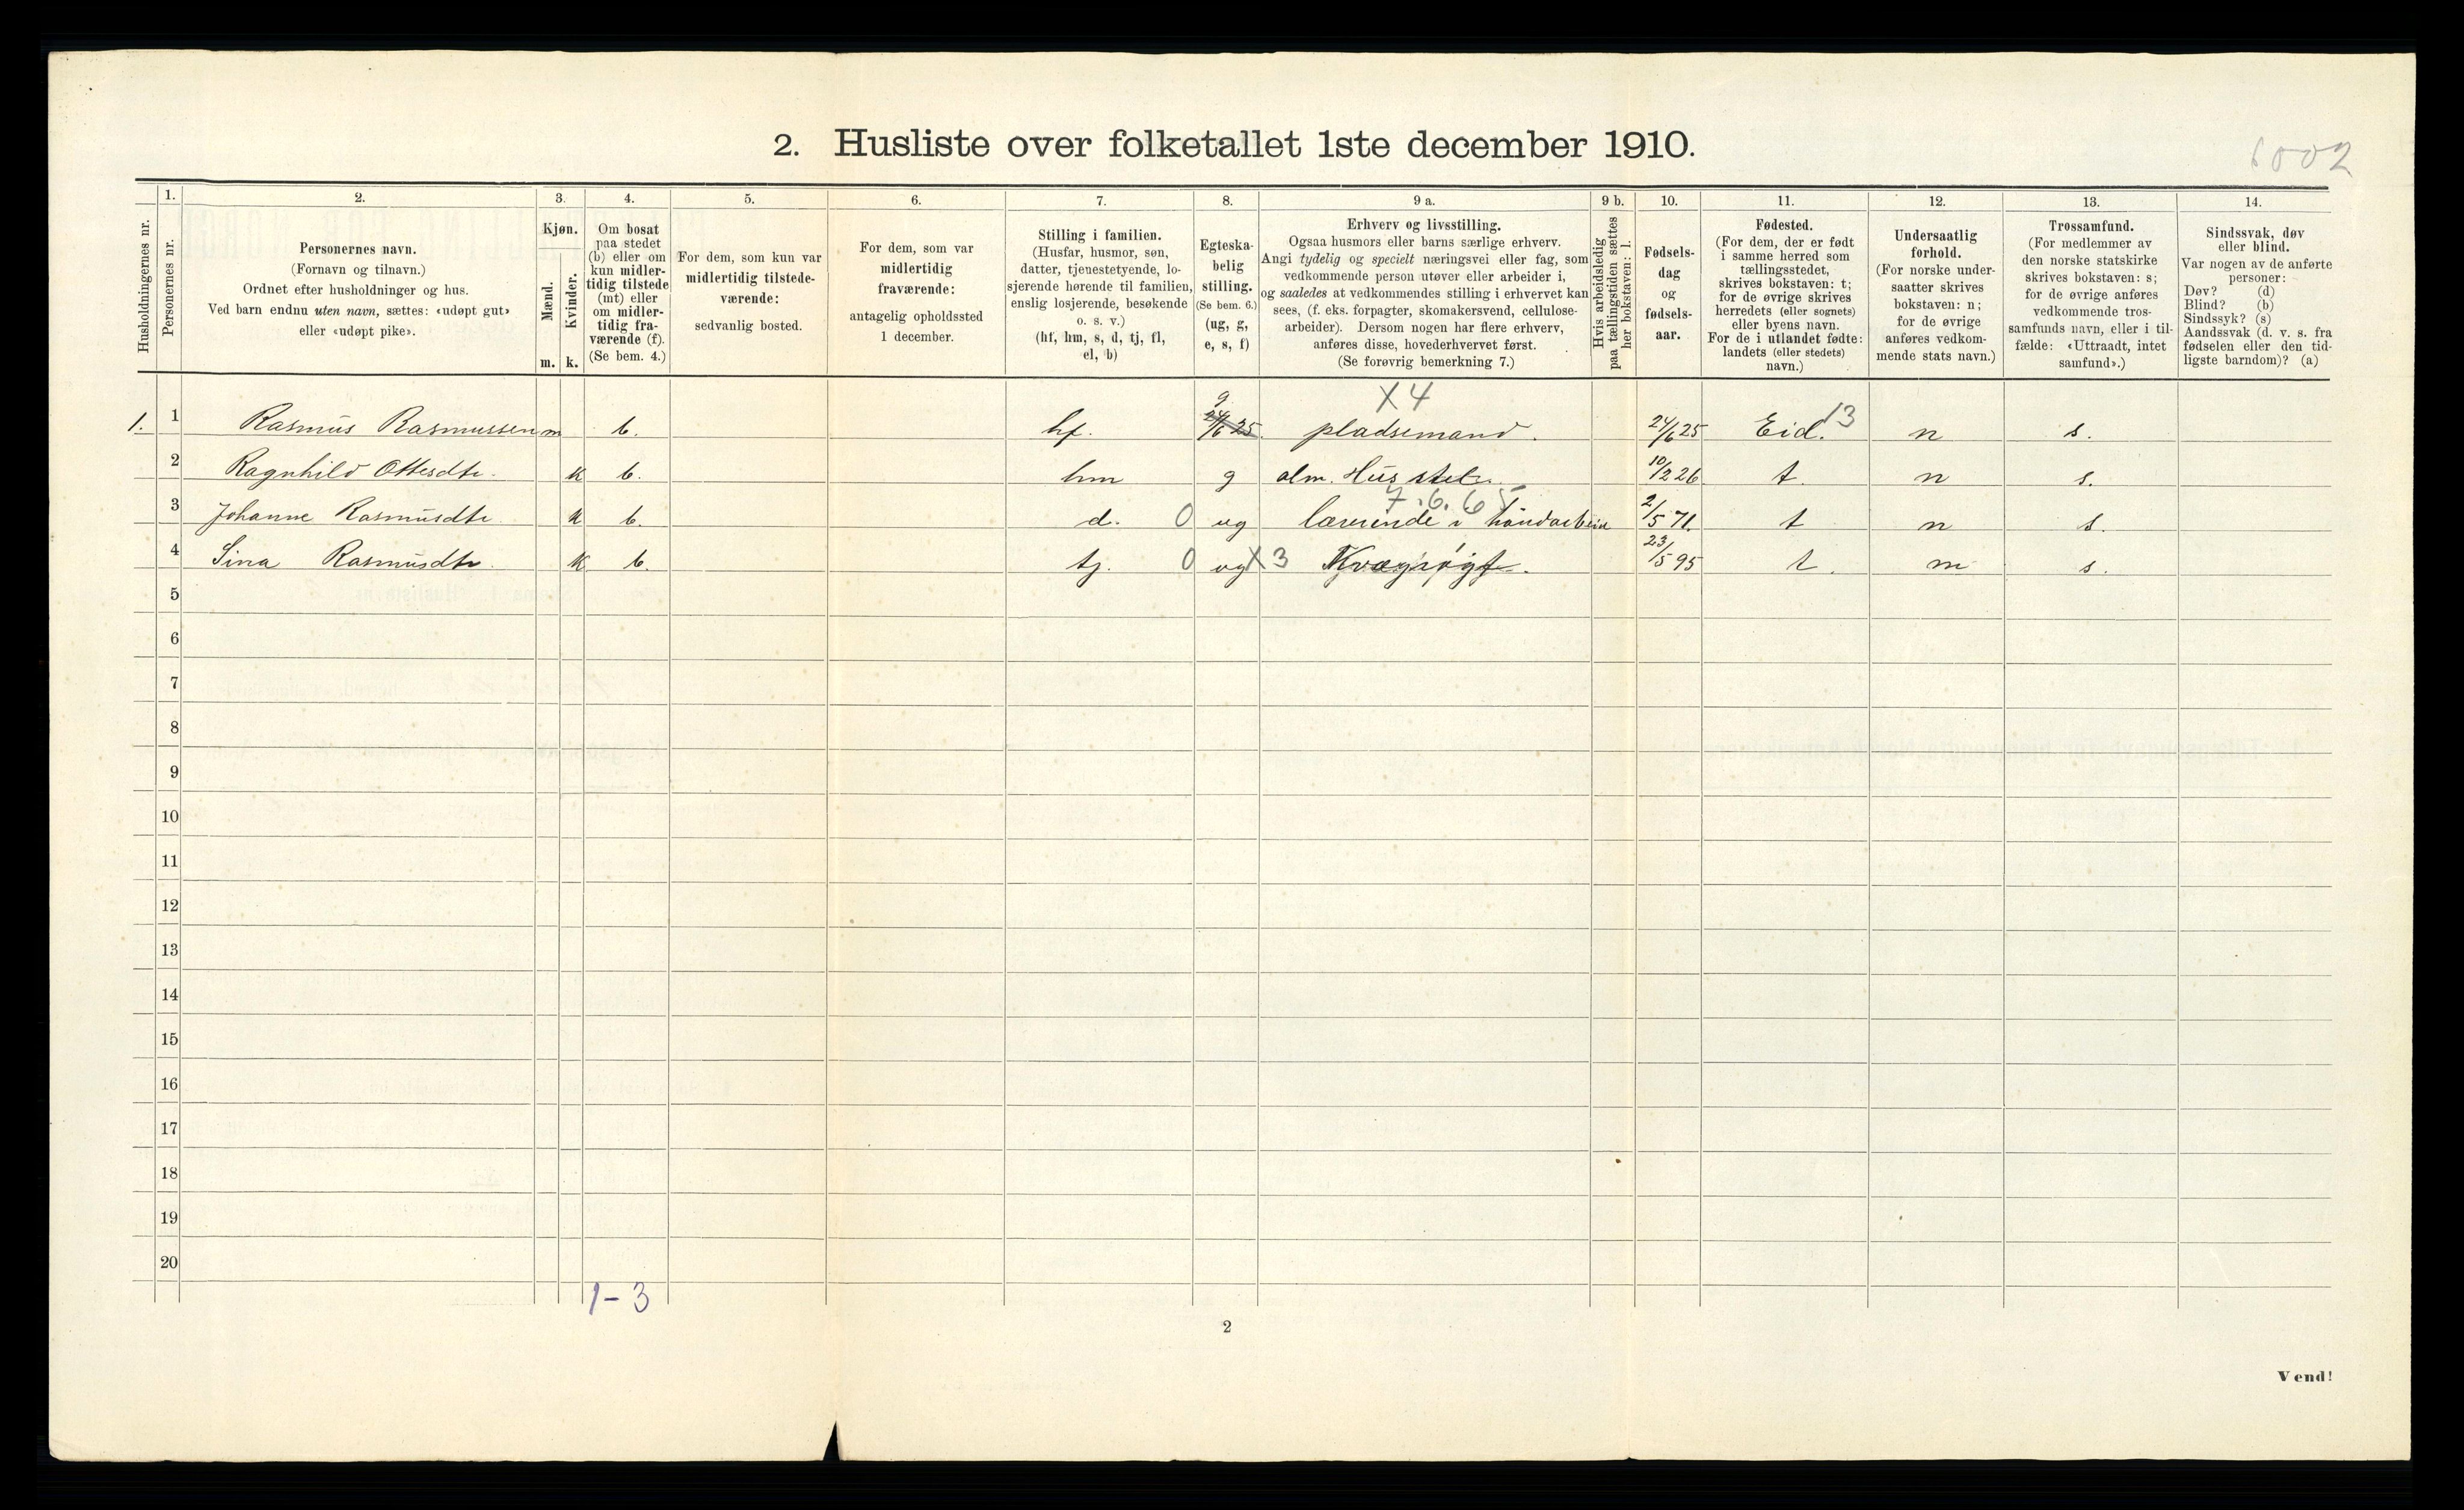 2. Husliste over folketallet 1ste december 1910.
6002
Husholdningernes nr.
1.
Personernes nr.
2.
Personernes navn.
(Fornavn og tilnavn.)
Ordnet efter husholdninger og hus.
Ved barn endnu uten navn, sættes: «udøpt gut»
eller «udøpt pike».
3.
Kjøn.
Mænd.
Kvinder.
m. k.
4.
Om bosat
paa stedet
(b) eller om
kun midler-
tidig tilstede
(mt) eller
om midler-
tidig fra-
værende (f).
(Se bem. 4.)
5.
For dem, som kun var
midlertidig tilstede-
værende:
sedvanlig bosted.
6.
For dem, som var
midlertidig
fraværende:
antagelig opholdssted
1 december.
7.
Stilling i familien.
(Husfar, husmor, søn,
datter, tjenestetyende, lo-
sjerende hørende til familien,
enslig losjerende, besøkende
o. s. v.)
(hf, hm, s, d, tj, fl,
el, b)
8.
Egteska-
belig
stilling.
(Se bem. 6.)
(ug, g,
e, s, f)
9 a.
Erhverv og livsstilling.
Ogsaa husmors eller barns særlige erhverv.
Angi tydelig og specielt næringsvei eller fag, som
vedkommende person utøver eller arbeider i,
og saaledes at vedkommendes stilling i erhvervet kan
sees, (f. eks. forpagter, skomakersvend, cellulose-
arbeider). Dersom nogen har flere erhverv,
anføres disse, hovederhvervet først.
(Se forøvrig bemerkning 7.)
9 b.
Hvis arbeidsledig
paa tællingstiden sættes
her bokstaven: l.
10.
Fødsels-
dag
og
fødsels-
aar.
11.
Fødested.
(For dem, der er født
i samme herred som
tællingsstedet,
skrives bokstaven: t;
for de øvrige skrives
herredets (eller sognets)
eller byens navn.
For de i utlandet fødte:
landets (eller stedets)
navn.)
12.
Undersaatlig
forhold.
(For norske under-
saatter skrives
bokstaven: n;
for de øvrige
anføres vedkom-
mende stats navn.)
13.
Trossamfund.
(For medlemmer av
den norske statskirke
skrives bokstaven: s;
for de øvrige anføres
vedkommende tros-
samfunds navn, eller i til-
fælde: «Uttraadt, intet
samfund».)
14.
Sindssvak, døv
eller blind.
Var nogen av de anførte
personer:
Døv? (d)
Blind? (b)
Sindssyk? (s)
Aandssvak (d. v. s. fra
fødselen eller den tid-
ligste barndom)? (a)
g X4
1. 1 Rasmus Rasmussen m b. hf. 24/6 25. pladsemand. 24/6 25 Eid. 13 n s.
2 Ragnhild Ottesdtr. k b. hm g alm. Husstel. 10/2 26 t. n s.
7.6.65
3 Johanne Rasmusdtr k b. d. 0 ug lærerinde i håndarbeide 2/5 71. t n s.
4 Sina Rasmusdtr. k b. tj. 0 ug X3 Kvægrøgt. 23/5 95 t. n s.
5
6
7
8
9
10
11
12
13
14
15
16
17
18
19
20
1-3
2
Vend!